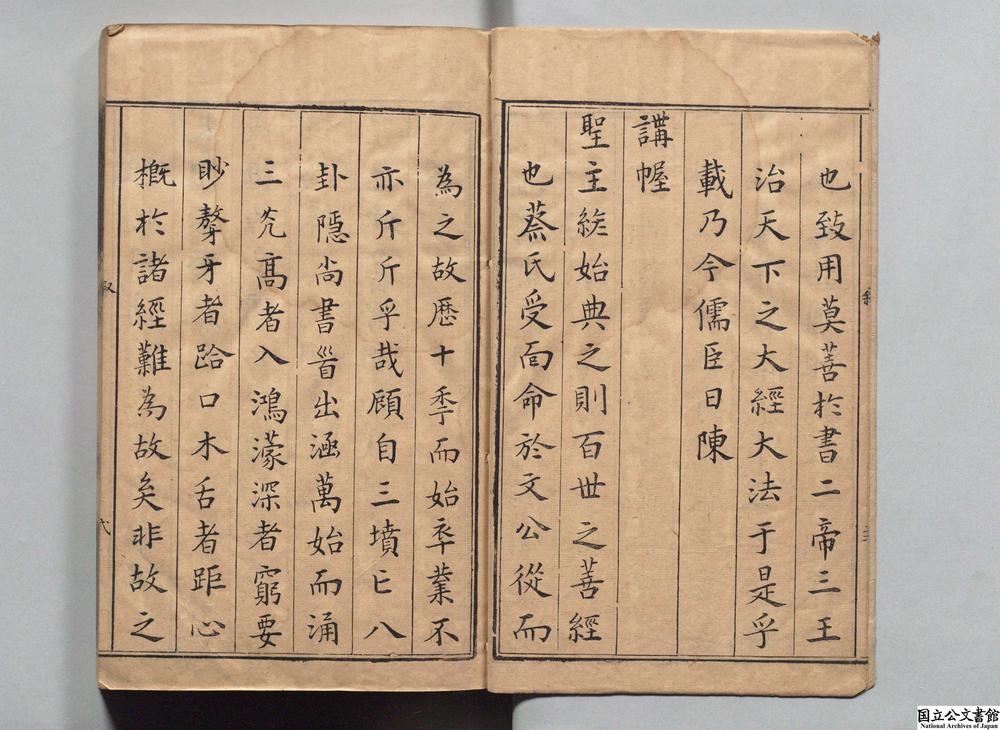 也致用莫善於書二帝三王
治天下之大經大法于是乎
載乃今儒臣日陳
講幄
聖主終始典之則百世之善經
也蔡氏受面命於文公從而
為之故歷十秊而始卒業不
亦斤斤乎哉顧自三墳亡八
卦隱尚書晉出涵萬始而涌
三光高者入鴻濛深者窮要
眇聱牙者跲口木舌者距心
概於諸經難為故矣非故之
叙
国立公文書館
National Archives of Japan